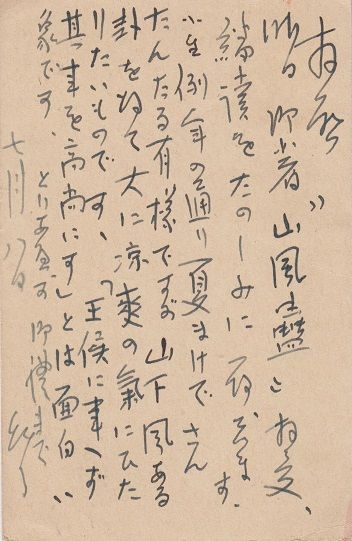 拝啓
昨日 御著「山風蠱」拝受、
繙読をたのしみに 居ります。
小生例年の通り夏まけで さん
たんたる有様ですが 山下風ある
卦を得て大に涼爽の氣にひた
りたいものです、「王侯に事へず
其事を高尚にす」とは面白い
象です、とりあへず御禮まで
七月八日